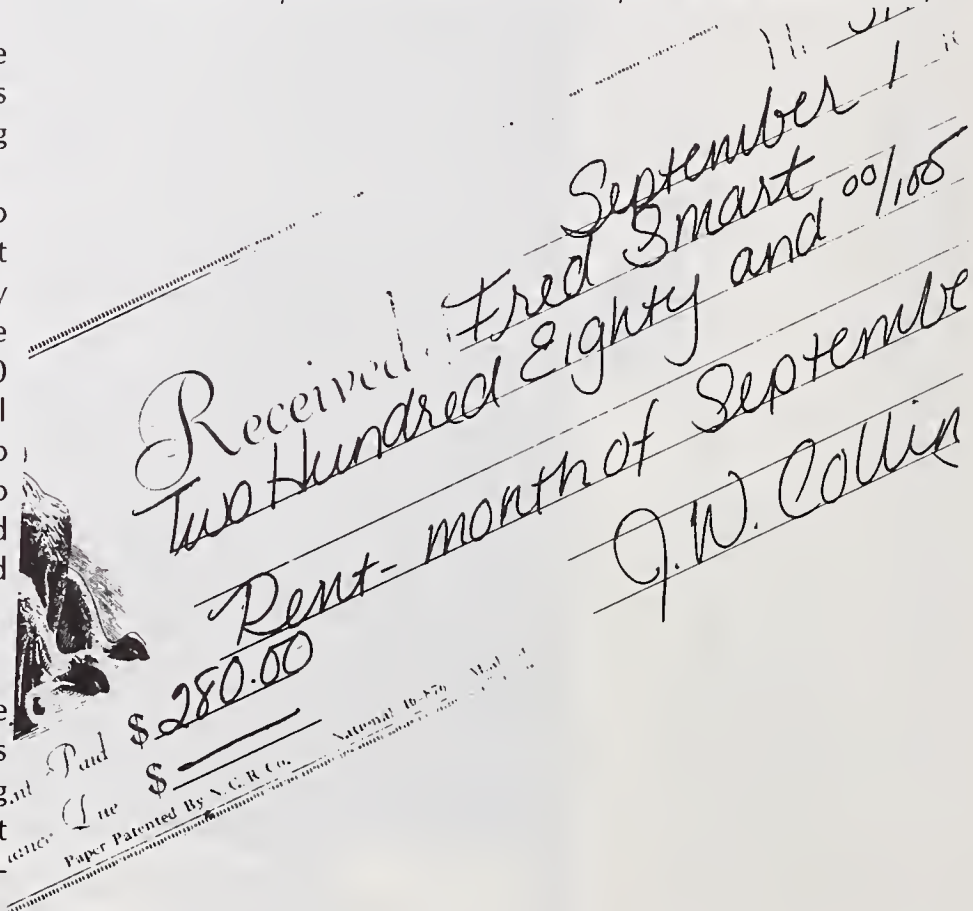 September 1
Received Fred Smart
Two Hundred Eighty and 00/100
Rent- month of Septembe
J.W. Collin
Paid $ 280.00
$ —
Paper Patented By N. C. R Co. National